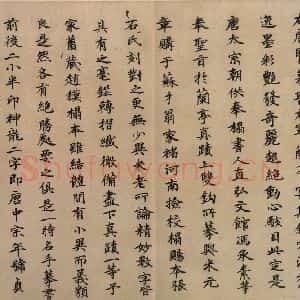 逸墨彩艷發奇麗超絕動心駭目此定是
唐太宗朝供奉搨書人直弘文館馮承素等
奉聖旨於蘭亭真蹟上雙鈎所摹與米元
章購于蘇才翁家褚河南檢校搨賜本張
石氏刻對之更無少異米老所論精妙數字皆
具有之毫鋩轉摺纖微備盡下真蹟一等予
家舊藏趙模搨本雖結體間有小異而義類
良是然各有絕勝處要之俱是一時名手摹書
前後二小半印神龍二字即唐中宗年號貞